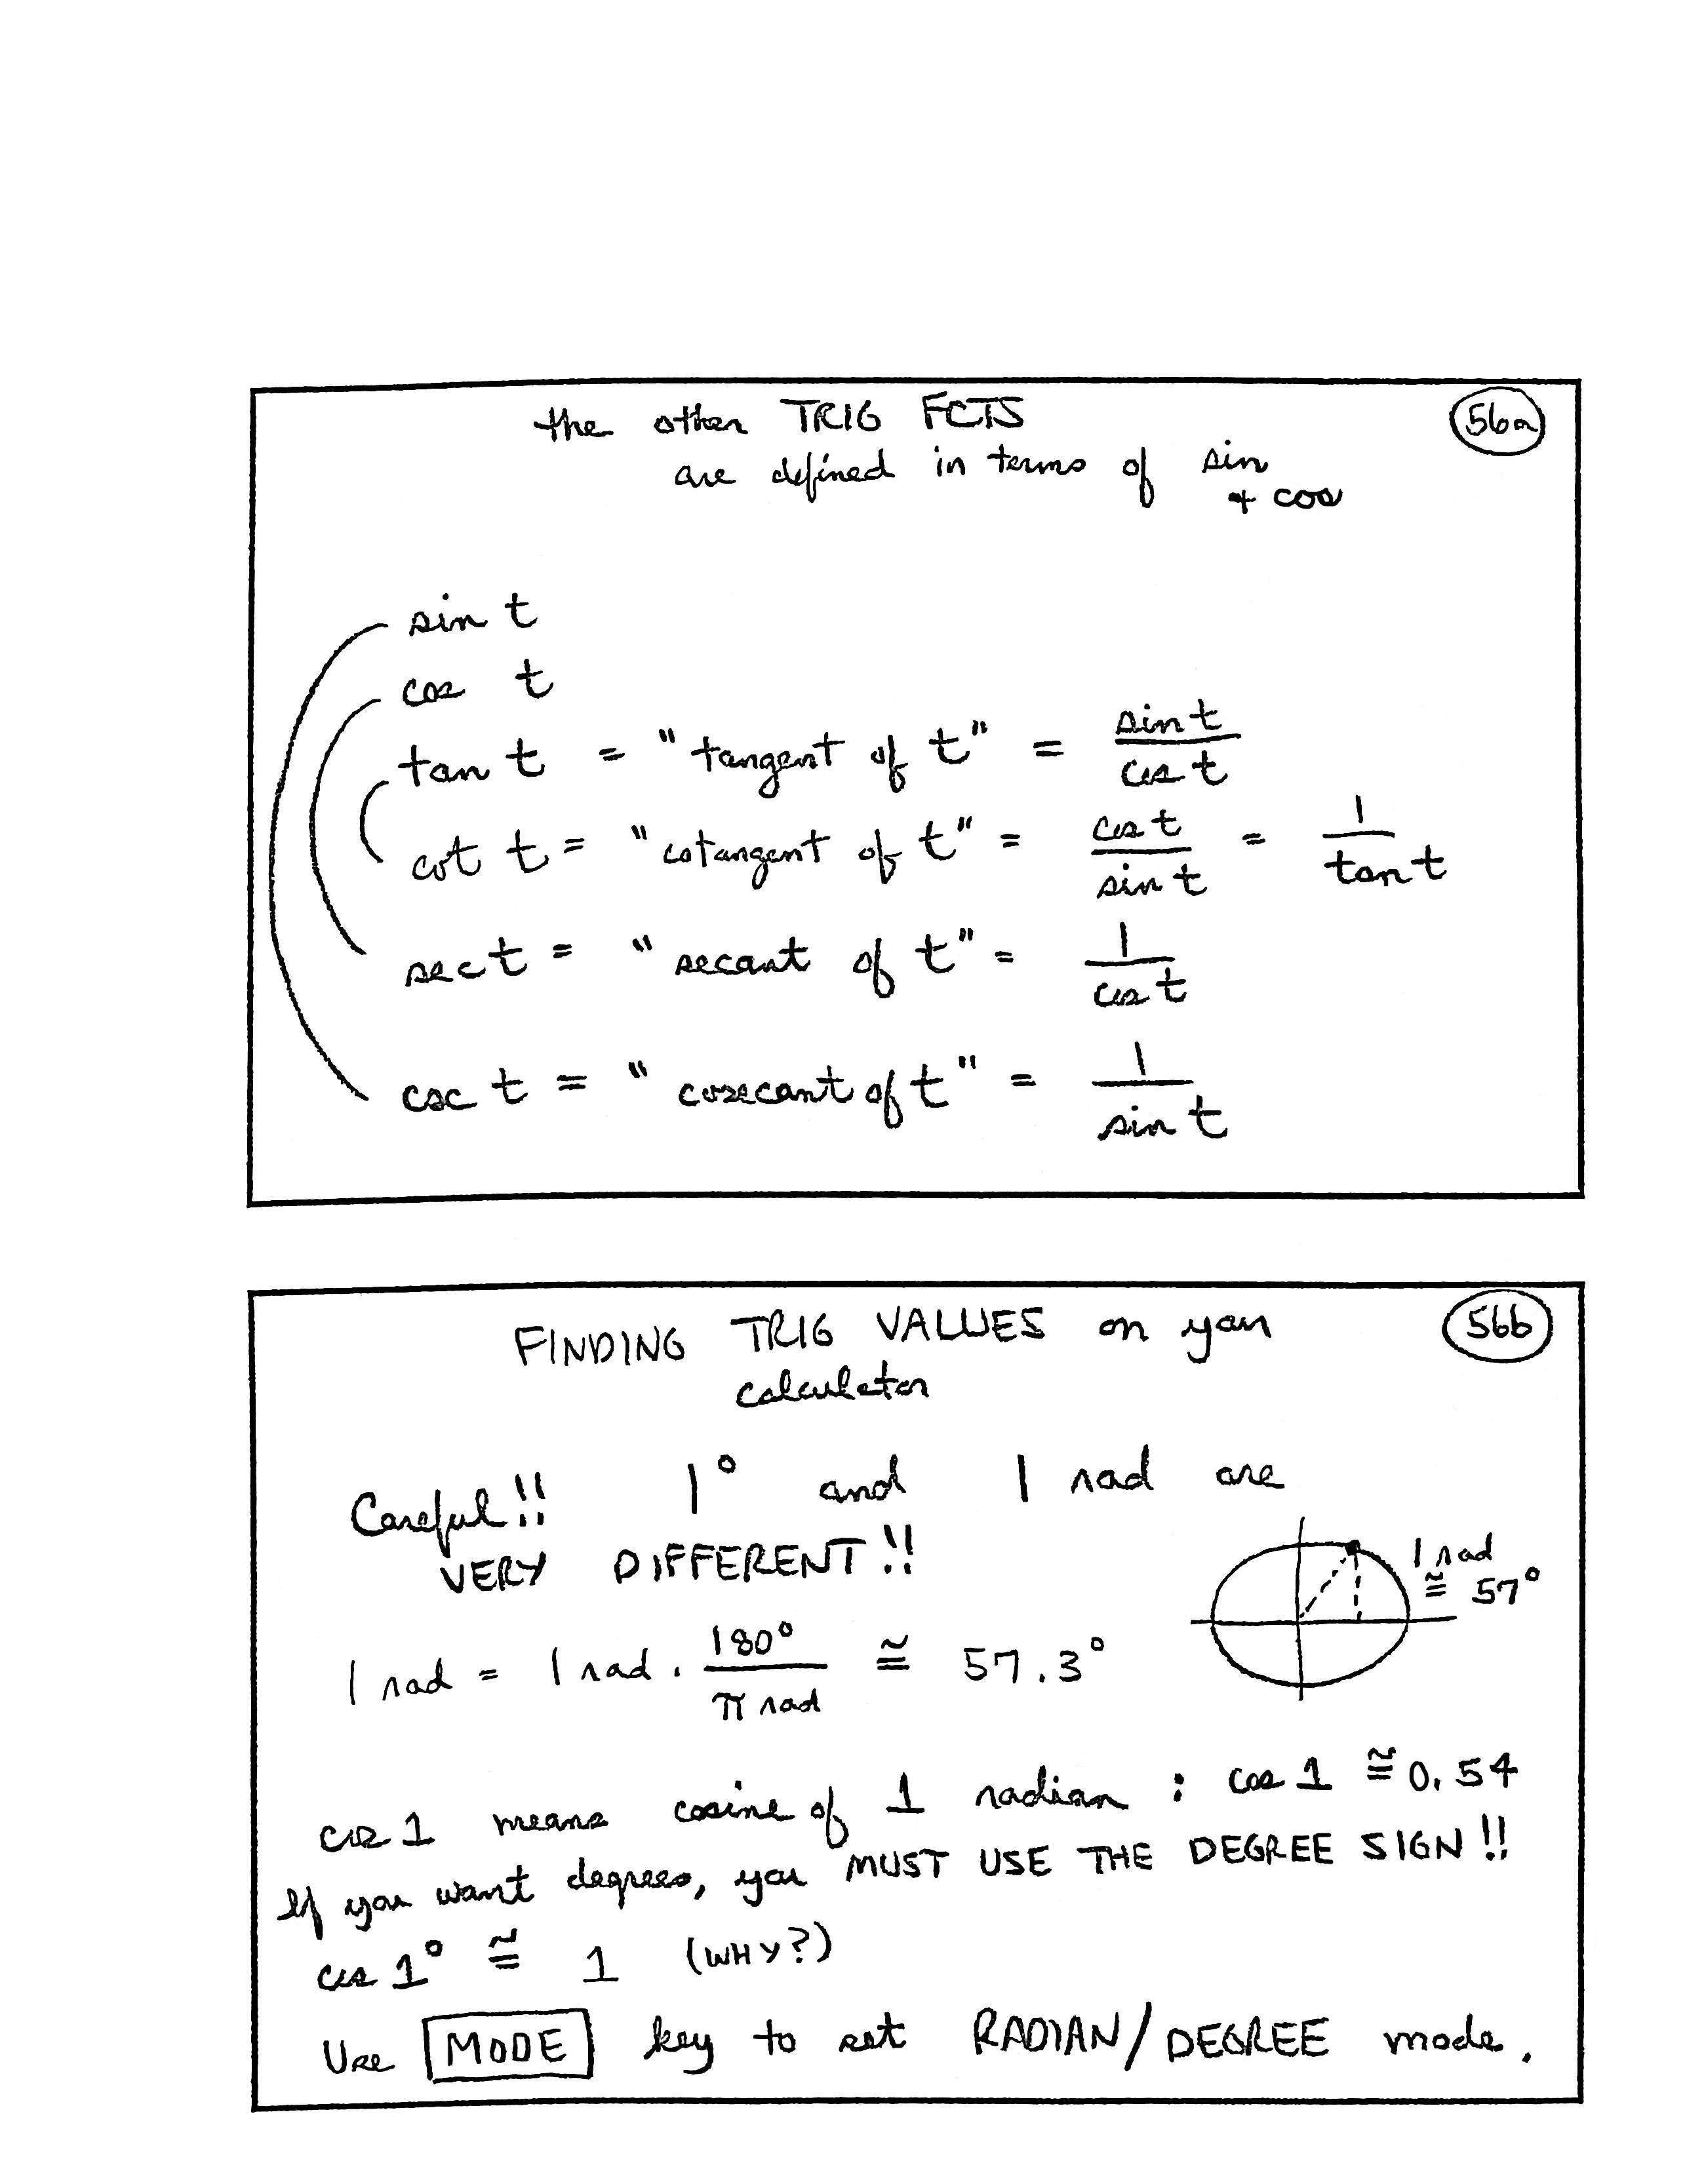 the other TRIG FCTS
56a
are defined in terms of sin
+ cos
sin t
cos t
tan t = "tangent of t" = sin t / cos t
cot t = "cotangent of t" = cos t / sin t = 1 / tan t
sec t = "secant of t" = 1 / cos t
csc t = "cosecant of t" = 1 / sin t
FINDING TRIG VALUES on your
56b
calculator
Careful!! 1° and 1 rad are
VERY DIFFERENT!!
1 rad ≅ 57°
1 rad = 1 rad · 180° / π rad ≅ 57.3°
cos 1 means cosine of 1 radian : cos 1 ≅ 0.54
If you want degrees, you MUST USE THE DEGREE SIGN!!
cos 1° ≅ 1 (WHY?)
Use MODE key to set RADIAN/DEGREE mode.